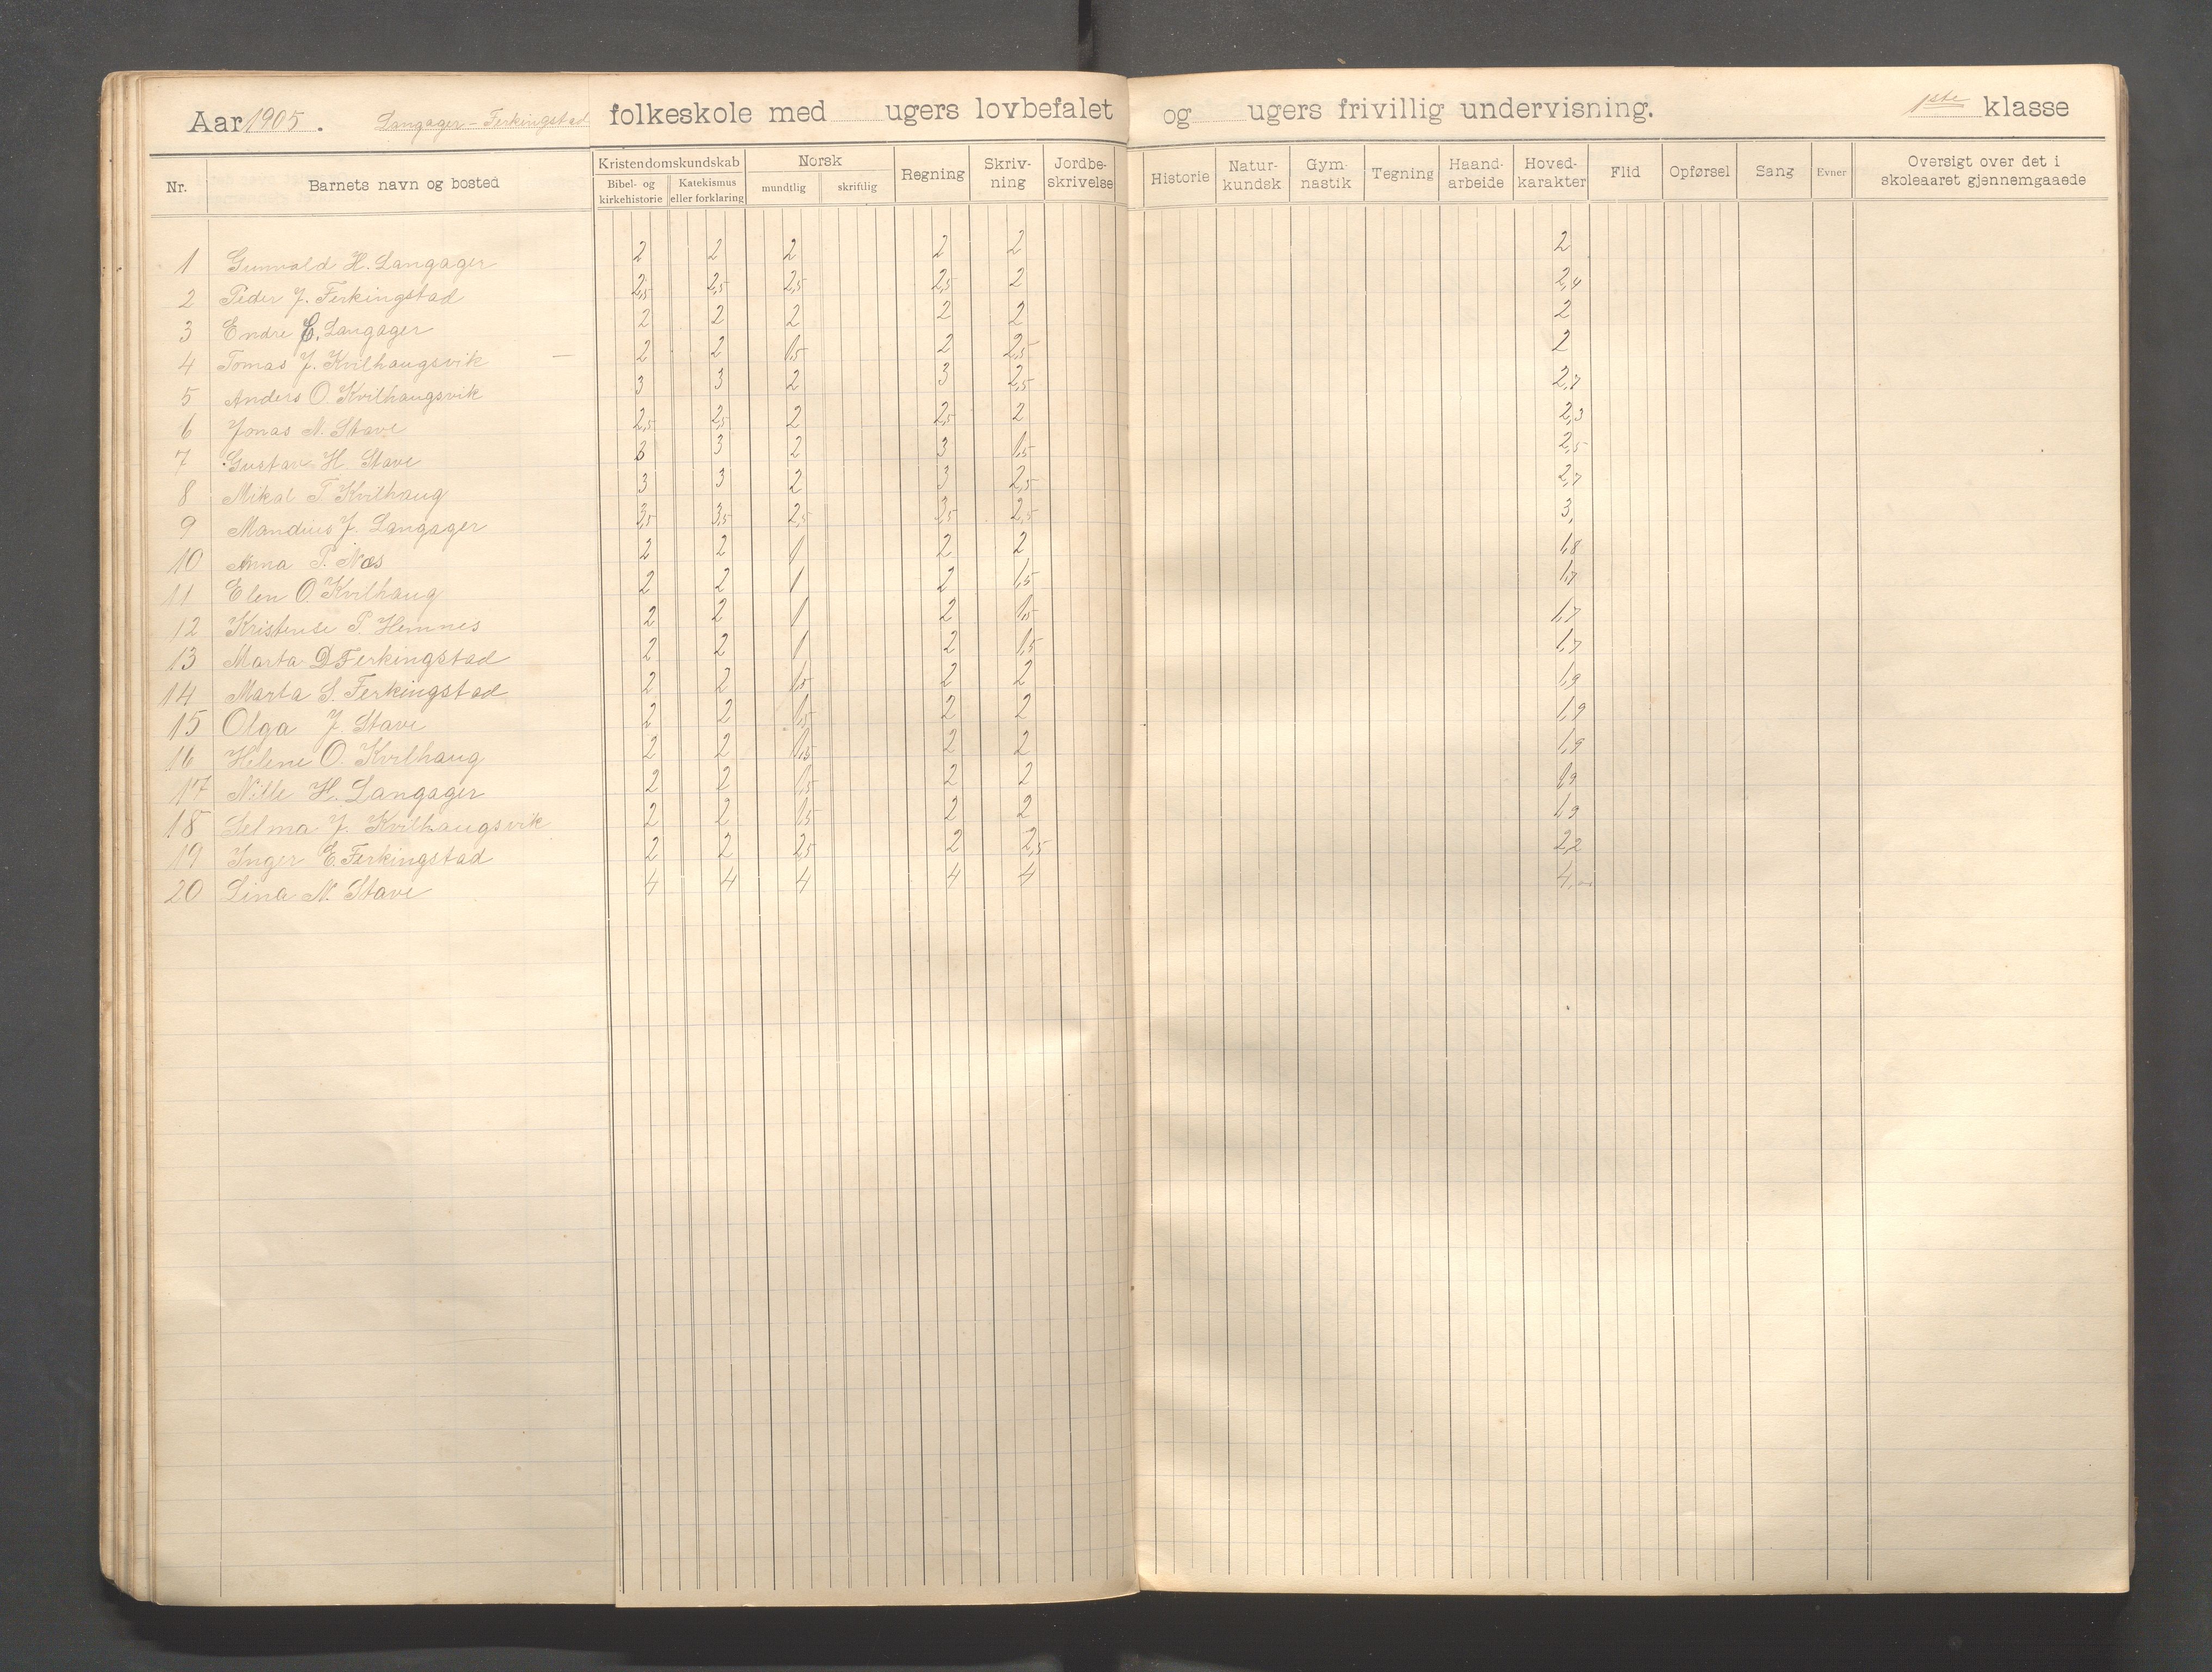 Aar 1905. Langager-Ferkingstad folkeskole med ugers lovbefalet og ugers frivillig undervisning. 1ste klasse
Nr. Barnets navn og bosted Kristendomskundskab Bibel- og kirkehistorie Katekismus eller forklaring Norsk mundtlig skriftlig Regning Skriv-ning Jordbe-skrivelse Historie Natur-kundsk. Gym-nastik Tegning Haand-arbeide Hoved-karakter Flid Opførsel Sang Evner Oversigt over det i skoleaaret gjennemgaaede
1 Gunvald H. Langager 2 2 2 2 2 2
2 Peder J. Ferkingstad 2,5 2,5 2,5 2,5 2 2,4
3 Endre E. Langager 2 2 2 2 2 2
4 Tomas J. Kvilhaugsvik — 2 2 1,5 2 2,5 2
5 Anders O. Kvilhaugsvik 3 3 2 3 2,5 2,7
6 Jonas N. Stave 2,5 2,5 2 2,5 2 2,3
7 Gustav H. Stave 3 3 2 3 1,5 2,5
8 Mikal T. Kvilhaug 3 3 2 3 2,5 2,7
9 Mandius J. Langager 3,5 3,5 2,5 3,5 2,5 3,
10 Anna P. Næs 2 2 1 2 2 1,8
11 Elen O. Kvilhaug 2 2 1 2 1,5 1,7
12 Kristense P. Hemnes 2 2 1 2 1,5 1,7
13 Marta D Ferkingstad 2 2 1 2 1,5 1,7
14 Marta S. Ferkingstad 2 2 1,5 2 2 1,9
15 Olga J. Stave 2 2 1,5 2 2 1,9
16 Helene O. Kvilhaug 2 2 1,5 2 2 1,9
17 Nille H. Langager 2 2 1,5 2 2 1,9
18 Selma J. Kvilhaugsvik 2 2 1,5 2 2 1,9
19 Inger E. Ferkingstad 2 2 2,5 2 2,5 2,2
20 Lina N. Stave 4 4 4 4 4 4,—